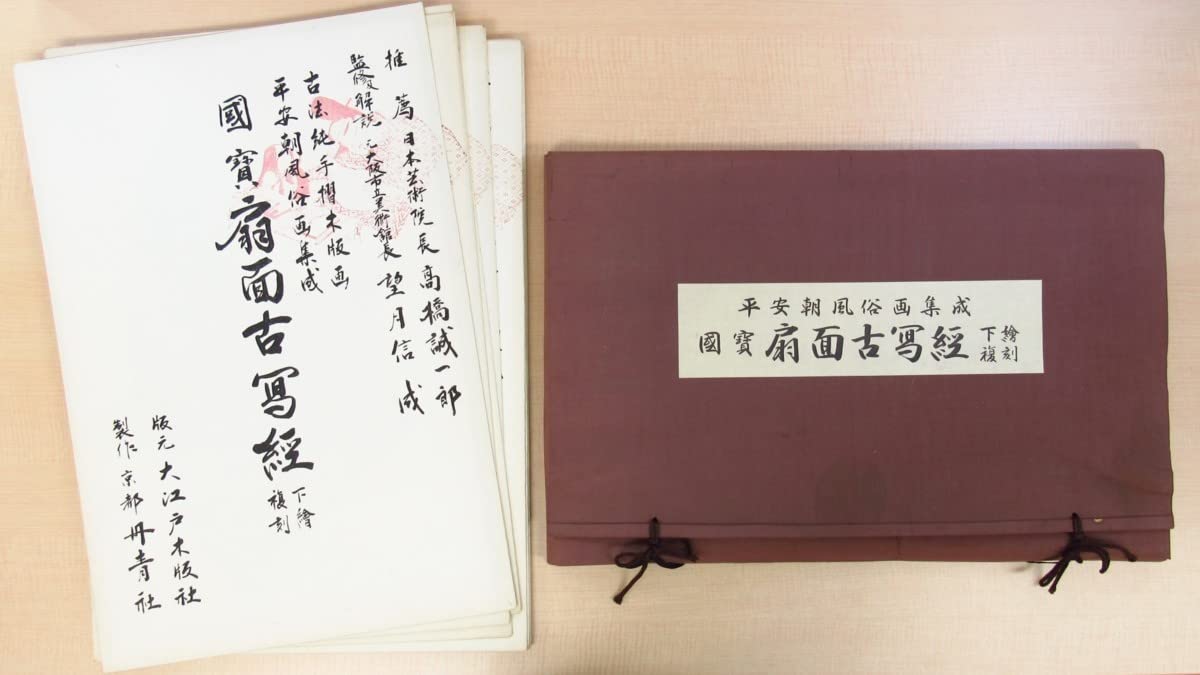 推薦 日本芸術院長 高橋誠一郎
監修及解説 元大阪市立美術館長 望月信成
古法純手摺木版画
平安朝風俗画集成
國寶扇面古寫經
下繪
複刻
版元 大江戸木版社
製作 京都丹青社
平安朝風俗画集成
國寶 扇面古寫經 下繪複刻